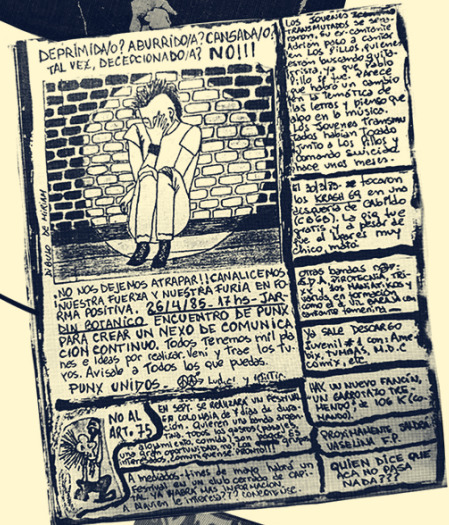 DEPRIMIDA/O? ABURRIDO/A? CANSADA/O?
TAL VEZ, DECEPCIONADO/A? NO!!!
DIBUJO DE MIRIAN
¡NO NOS DEJEMOS ATRAPAR!! CANALICEMOS
NUESTRA FUERZA Y NUESTRA FURIA EN FO-
RMA POSITIVA. 26/4/85. 17 HS- JAR-
DIN BOTANICO ENCUENTRO DE PUNX
PARA CREAR UN NEXO DE COMUNICA
CION CONTINUO. Todos Tenemos mil pla
nes e Ideas por realizar. Vení y Trae los Tu-
yos. Avisale a Todos los que puedas.
PUNX UNIDOS.
NO AL
ART. 75
EN SEPT. SE REALIZARÁ UN FESTIVAL
EN COLONIA de 4 días de dura-
ción. Quieren una banda argen-
TINA. Todos los gastos (pasajes,
alojamiento, comida) son pagos
una gran oportunidad. Los grupos
interesados, comuniquense PRONTO!!!
A mediados-fines de mayo habrá un
Festival en un club cerrado de CAPI-
TAL. YA HABRÁ MAS INFORMACION.
A alguien le interesa???
LOS JOVENES
TRANSMUTADOS SE SEPA-
su ex-cantante
Adrian pasó a cantar
con LOS PILLOS, quienes
están buscando guita-
rrista, ya que Pablo
Pillo se fue. PARECE
que habrá un cambio
en la temática de
las letras y pienso que
algo en la música.
Los Jovenes Transmu
tados habían Tocado
junto a Los Pillos y
Comando Suicida
hace unos meses.
tocaron
los KRASH 69 en una
disquería de CABILDO
La gig fue
gratis y a pesar de
ser al
chico, mató
otras bandas
en formación
como
cantante femenina
YA SALE DESCARGO
Juvenil # 1 con: Amé
bix, TUMBAS, M.D.C
comix, etc.
HAY UN NUEVO FANCIN,
UN GARROTAZO TRE-
MENDO!
PROXIMAMENTE SALDRA
VASELINA F.P.
QUIEN DICE QUE
ACA NO PASA
NADA???